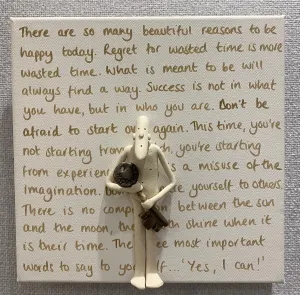 There are so many beautiful reasons to be
happy today. Regret for wasted time is more
wasted time. What is meant to be will
always find a way. Success is not in what
you have, but in who you are. Don't be
afraid to start over again. This time, you're
not starting from you're starting
from experience. is a misuse of the
Imagination. yourself to others.
There is no between the sun
and the moon, shine when it
is their time. The most important
words to say to ...'Yes, I can!'